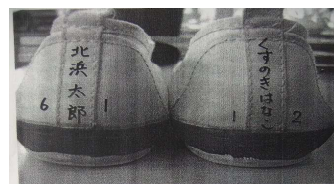 北浜太郎
6 1
くすのきはなこ
1 2